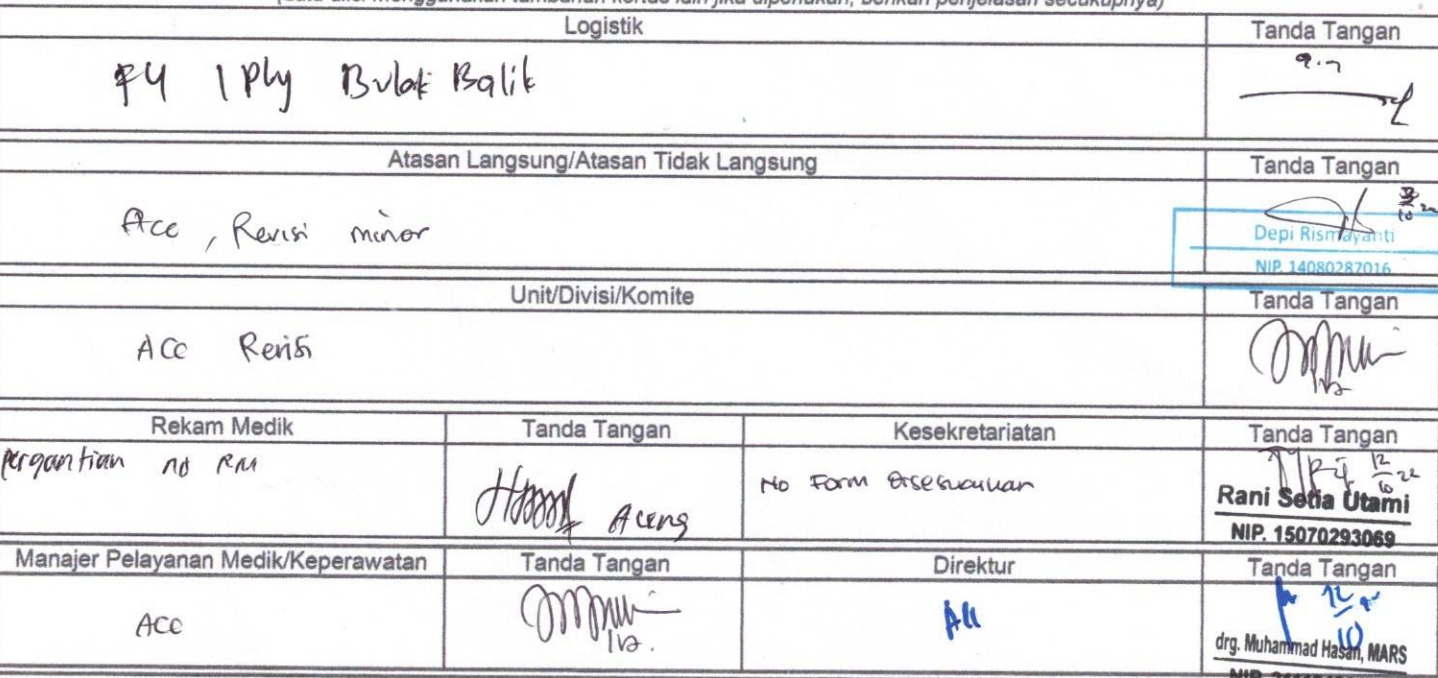 Logistik
Tanda Tangan
F4 1 Ply Bulak Balik
Atasan Langsung/Atasan Tidak Langsung
Tanda Tangan
Acc, Revisi minor
Depi Rismayanti
NIP. 14080287016
Unit/Divisi/Komite
Tanda Tangan
ACC Revisi
Rekam Medik
Tanda Tangan
Kesekretariatan
Tanda Tangan
pergantian no RM
Aceng
No Form disesuaikan
12/10 22
Rani Setia Utami
NIP. 15070293069
Manajer Pelayanan Medik/Keperawatan
Tanda Tangan
Direktur
Tanda Tangan
ACC
Iva.
Acc
12/10
drg. Muhammad Hasan, MARS